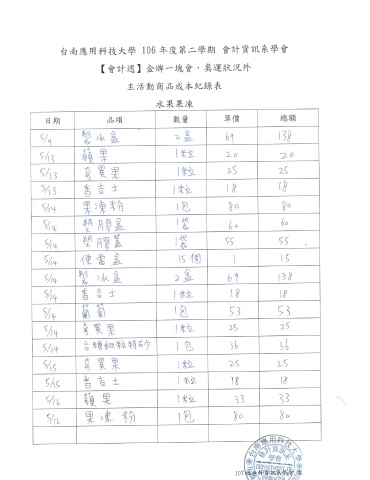 台南應用科技大學 106 年度第二學期 會計資訊系學會
【會計週】金牌一塊會，奧運狀況外
主活動商品成本紀錄表
水果果凍
日期 品項 數量 單價 總額
5/9 製冰盒 2盒 69 138
5/13 蘋果 1粒 20 20
5/13 奇異果 1粒 25 25
5/13 香吉士 1粒 18 18
5/14 果凍粉 1包 80 80
5/14 塑膠盒 1袋 60 60
5/14 塑膠蓋 1袋 55 55
5/14 便當盒 15個 1 15
5/14 製冰盒 2盒 69 138
5/14 香吉士 1粒 18 18
5/14 葡萄 1包 53 53
5/14 奇異果 1粒 25 25
5/14 台糖細粒特砂 1包 36 36
5/15 奇異果 1粒 25 25
5/15 香吉士 1粒 18 18
5/16 蘋果 1粒 33 33
5/16 果凍粉 1包 80 80
台南應用科技大學
會計資訊系
學會
DEPARTMENT OF